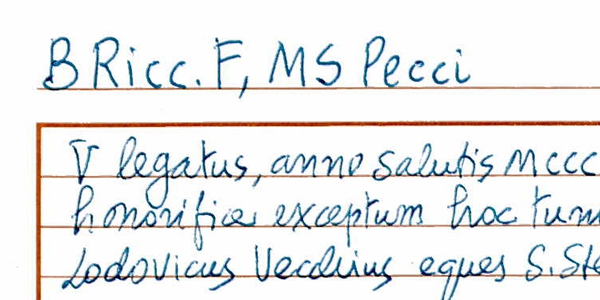 B Ricc. F, MS Pecci
V legatus, anno salutis MCCC
honorifice exceptum hoc tum
Lodovicus Vecchius eques S. Ste